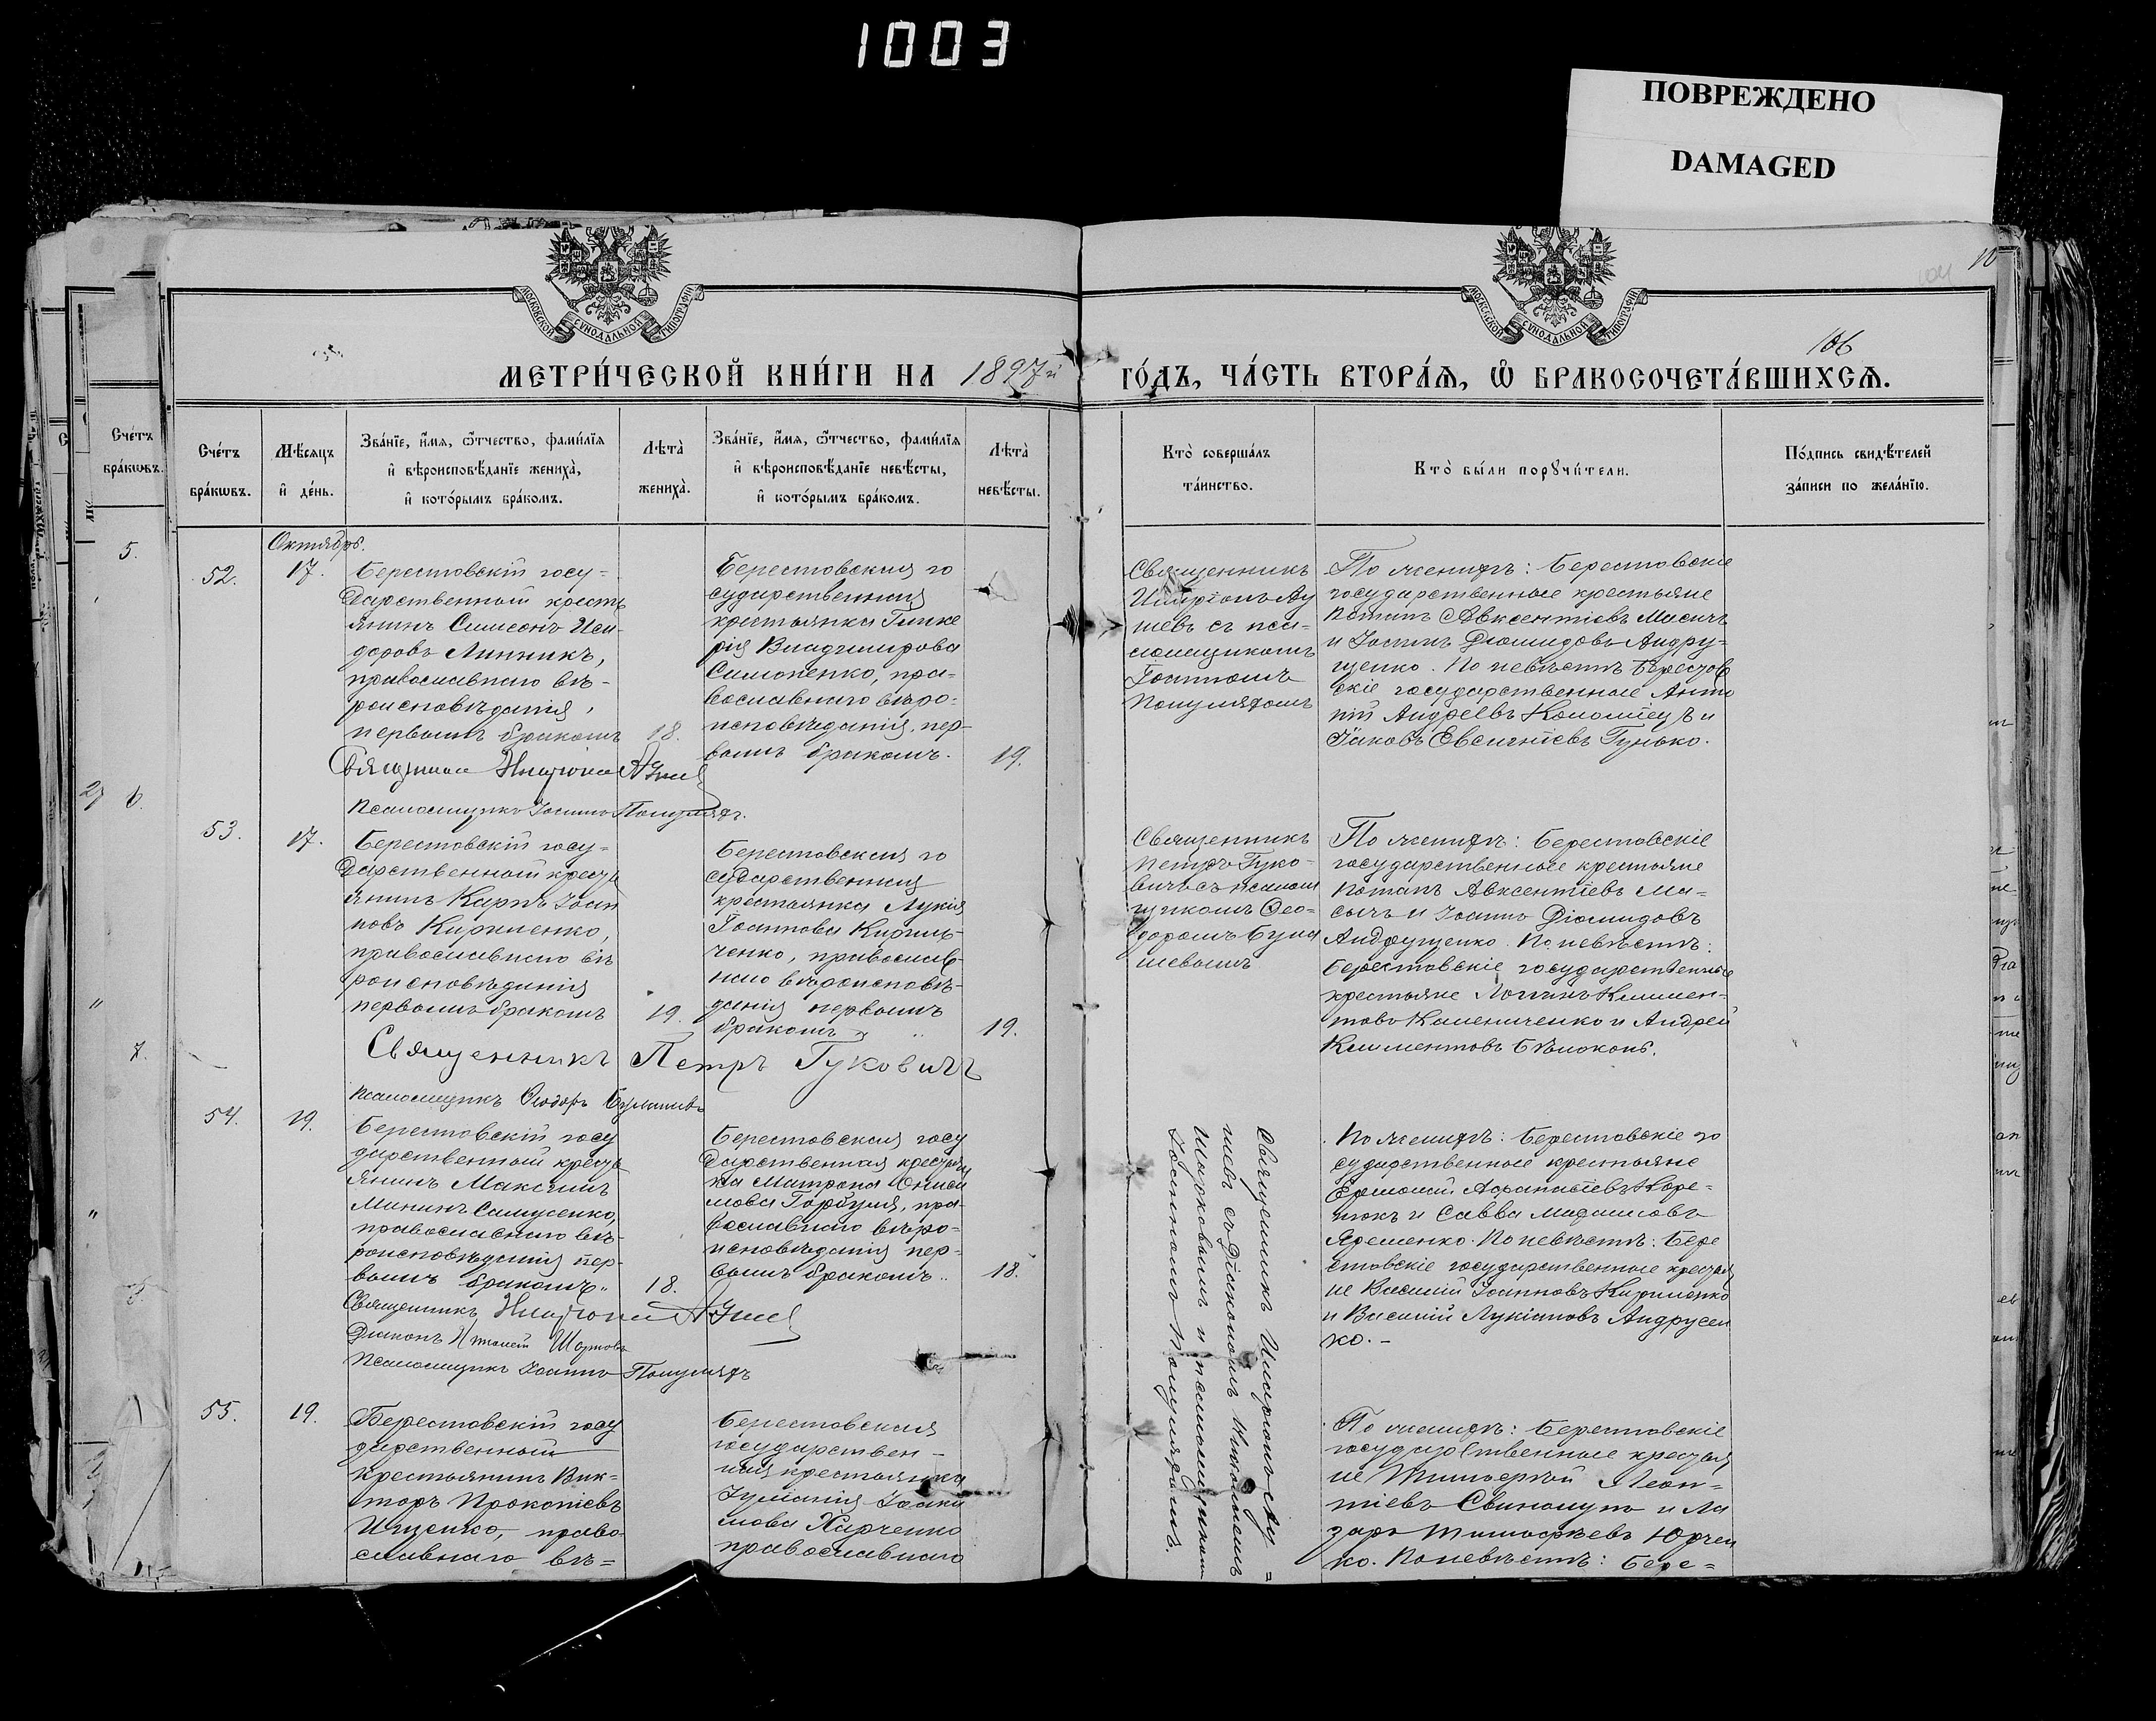 1003
ПОВРЕЖДЕНО
DAMAGED
МОСКОВСКОЙ СУНОДАЛЬНОЙ ТИПОГРАФІИ
МОСКОВСКОЙ СУНОДАЛЬНОЙ ТИПОГРАФІИ
10
106
МЕТРИ́ЧЕСКОЙ КНИ́ГИ НА 1897й
ГО́ДЪ, ЧА́СТЬ ВТОРА́Ѧ, Ѡ҆ БРАКОСОЧЕТА́ВШИХСѦ.
Сче́тъ
бра́кѡвъ.
Сче́тъ
бра́кѡвъ.
Мѣ́сѧцъ
и҆ де́нь.
Зва́нїе, и҆́мѧ, ѻ҆́тчество, фами́лїѧ
и҆ вѣроисповѣ́данїе жениха̀,
и҆ кото́рымъ бра́комъ.
Лѣ́та̀
жениха̀.
Зва́нїе, и҆́мѧ, ѻ҆́тчество, фами́лїѧ
и҆ вѣроисповѣ́данїе невѣ́сты,
и҆ кото́рымъ бра́комъ.
Лѣ́та̀
невѣ́сты.
Кто̀ соверша́лъ
та́инство.
Кто̀ бы́ли порꙋчи́тели.
По́дпись свидѣ́телей
за́писи по жела́нїю.
5.
6.
7.
Октябрь.
52.
17.
Берестовскій госу-
дарственный кресть
янинъ Симеонъ Иси-
доровъ Линникъ,
православнаго вѣ-
роисповѣданія,
первымъ бракомъ
18.
Берестовская го
сударственная
крестьянка Глике
рія Владимирова
Симоненко, пра-
вославнаго вѣро-
исповѣданія, пер-
вымъ бракомъ.
19.
Священникъ
Иларіонъ Ау
шевъ съ пса-
ломщикомъ
Іоанномъ
Полуляхомъ
По женихѣ: Берестовскіе
государственные крестьяне
Потапъ Авксентіевъ Масичъ
и Іоаннъ Діомидовъ Андру-
щенко. По невѣстѣ Берестов
скіе государственные Анто
ній Андреевъ Коломіецъ и
Іаковъ Евсигніевъ Гунько.
Псаломщикъ Іоаннъ Полуляхъ.
53.
17.
Берестовскій госу-
дарственный кресть
янинъ Карпъ Іоан
новъ Кириленко,
православнаго вѣ
роисповѣданія
первымъ бракомъ
19.
Берестовская го
сударственная
крестьянка Лукія
Іоаннова Кириль-
ченко, православ-
наго вѣроисповѣ-
данія первымъ
бракомъ
19.
Священникъ
Петръ Гуко-
вичъ съ псалом
щикомъ Ѳео-
доромъ
По женихѣ: Берестовскіе
государственные крестьяне
Потапъ Авксентіевъ Ма-
сичъ и Іоаннъ Діомидовъ
Андрущенко. По невѣстѣ:
Берестовскіе государственные
крестьяне Логгинъ Климен-
товъ Калениченко и Андрей
Климентовъ Бѣлоконь.
Священникъ Петръ Гуковичъ
Псаломщикъ Ѳеодоръ
54.
19.
Берестовскій госу
дарственный кресть
янинъ Максимъ
Мининъ Самусенко,
православнаго вѣ-
роисповѣданія пер-
вымъ бракомъ"
18.
Берестовская госу
дарственная крестьян
ка Матрона Ониси
мова Горбуля, пра-
вославнаго вѣро-
исповѣданія пер-
вымъ бракомъ..
18.
Священникъ Иларіонъ Ау-
шевъ съ Діакономъ
и псаломщикомъ
Іоанномъ Полуляхомъ.
По женихѣ: Берестовскіе го
сударственные крестьяне
Ермолай Аѳанасіевъ
и Савва
Яременко. По невѣстѣ: Бере
стовскіе государственные крестья
не Василій Іоанновъ Кириленко
и Василій Лукіановъ Андрусен
ко. -
Священникъ
Діаконъ
Псаломщикъ Іоаннъ Полуляхъ
55.
19.
Берестовскій госу
дарственный
крестьянинъ Вик-
торъ Прокопіевъ
Ищенко, право-
славнаго вѣ=
Берестовская
государствен-
ная крестьянка
Іуліанія Іоаки
мова Харченко
православнаго
По женихѣ: Берестовскіе
государственные крестья
не Тимоѳей Леон-
тіевъ и Ла
зарь Тимоѳеевъ Юрчен
ко. По невѣстѣ: Бере=